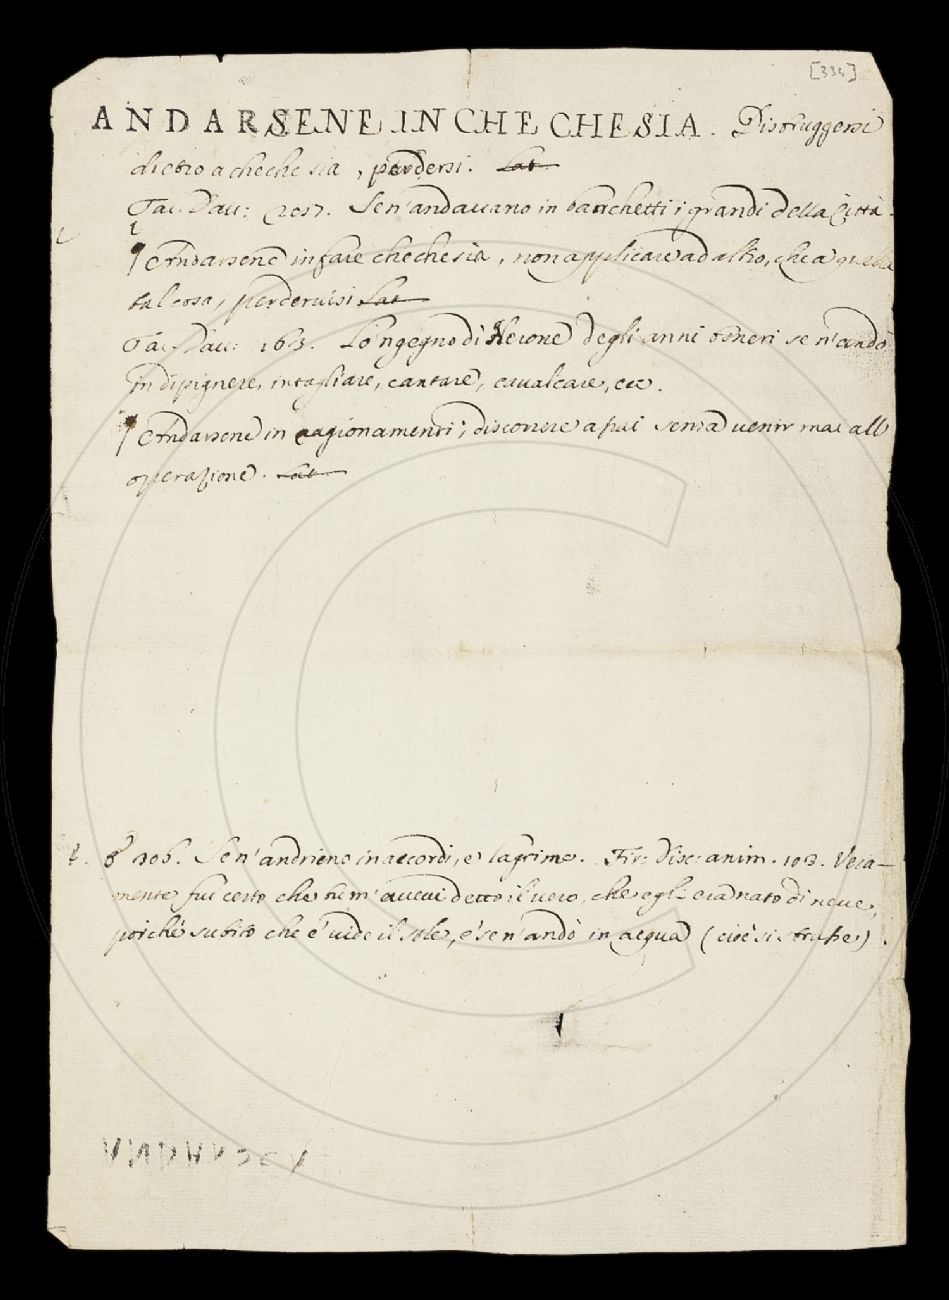 [334]
ANDARSENE IN CHE CHE SIA. Distruggersi
dietro a che che sia, perdersi. Lat
Tac. Dav: 205. Se n'andavano in banchetti i grandi della Città.
¶ Andarsene in fare che che sia, non applicare ad altro, che a quella
tal cosa, perdervisi Lat
Tac. Dav: 163. Lo 'ngegno di Nerone degli anni teneri se n'andò
in dipignere, intagliare, cantare, cavalcare, ecc.
¶ Andarsene in ragionamenti; discorrere assai senza venir mai all
operazione. Lat
306. Se n'andrieno in accordi, e lagrime. Fir: Disc: anim. 103. Vera-
mente fui certo che tu m'avevi detto il vero, che egli era nato di neve,
poiché subito che e' vide il sole, e' se n'andò in acqua (cioè si strusse).